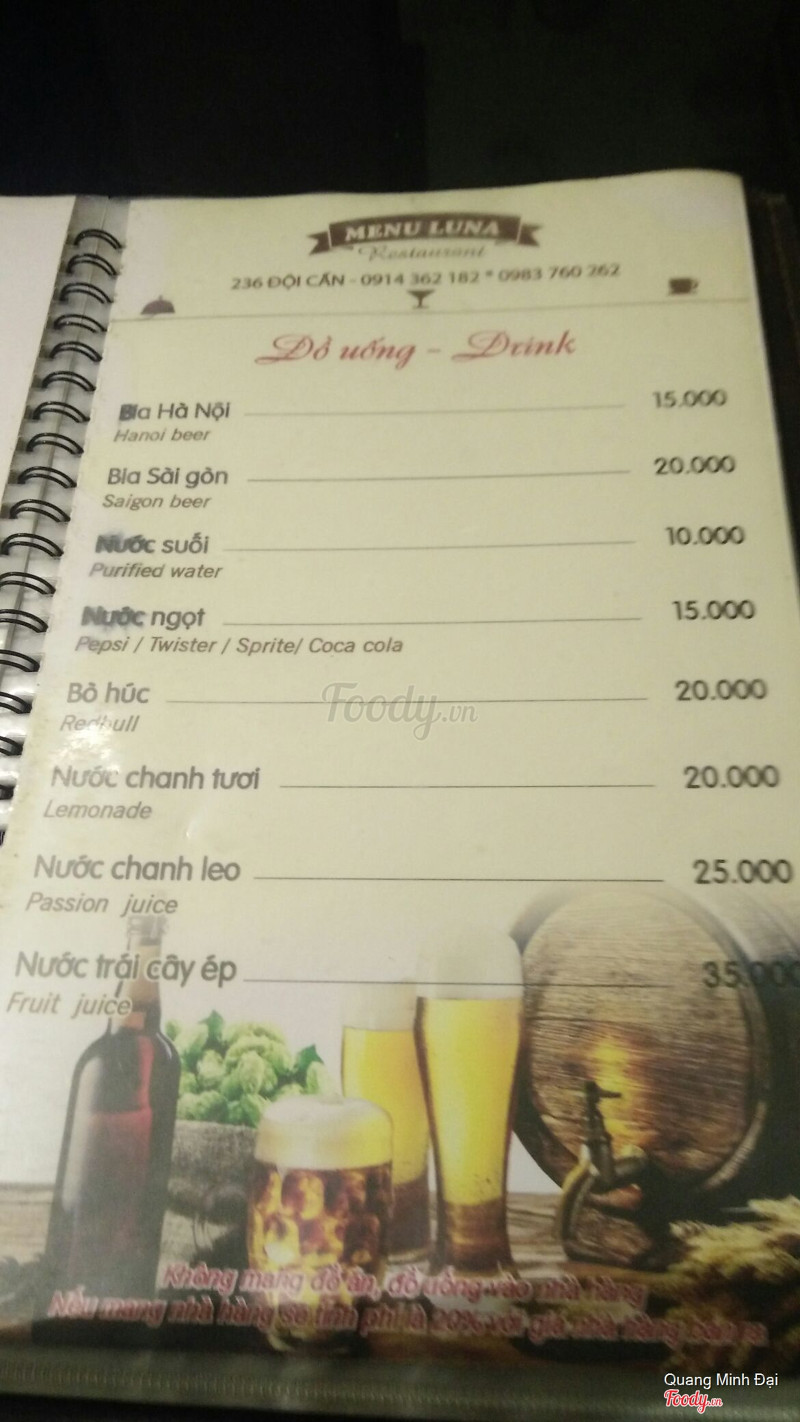 MENU LUNA
Restaurant
236 ĐỘI CẤN - 0914 362 182 * 0983 760 262
Đồ uống - Drink
Bia Hà Nội 15.000
Hanoi beer
Bia Sài gòn 20.000
Saigon beer
Nước suối 10.000
Purified water
Nước ngọt 15.000
Pepsi / Twister / Sprite/ Coca cola
Bò húc 20.000
Redbull
Foody.vn
Nước chanh tươi 20.000
Lemonade
Nước chanh leo 25.000
Passion juice
Nước trái cây ép 35.000
Fruit juice
Không mang đồ ăn, đồ uống vào nhà hàng
Nếu mang nhà hàng sẽ tính phí là 20% với giá nhà hàng bán ra
Quang Minh Đại
Foody.vn